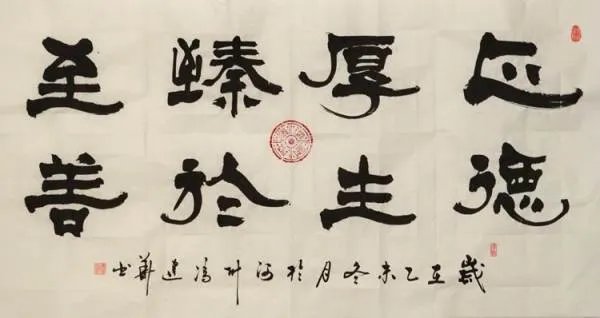 正德
厚生
臻於
至善
歲在乙未冬月於河州馮建書